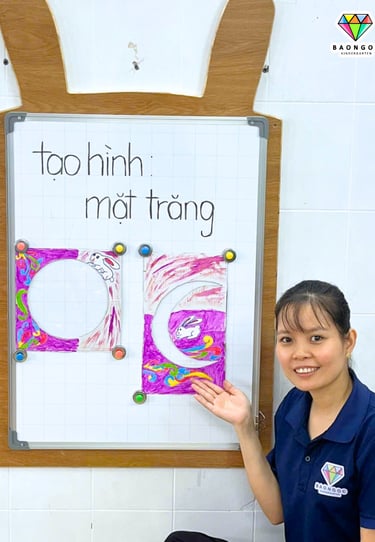 BAONGO
KINDERGARTEN
tạo hình:
mặt trăng
BAONGO